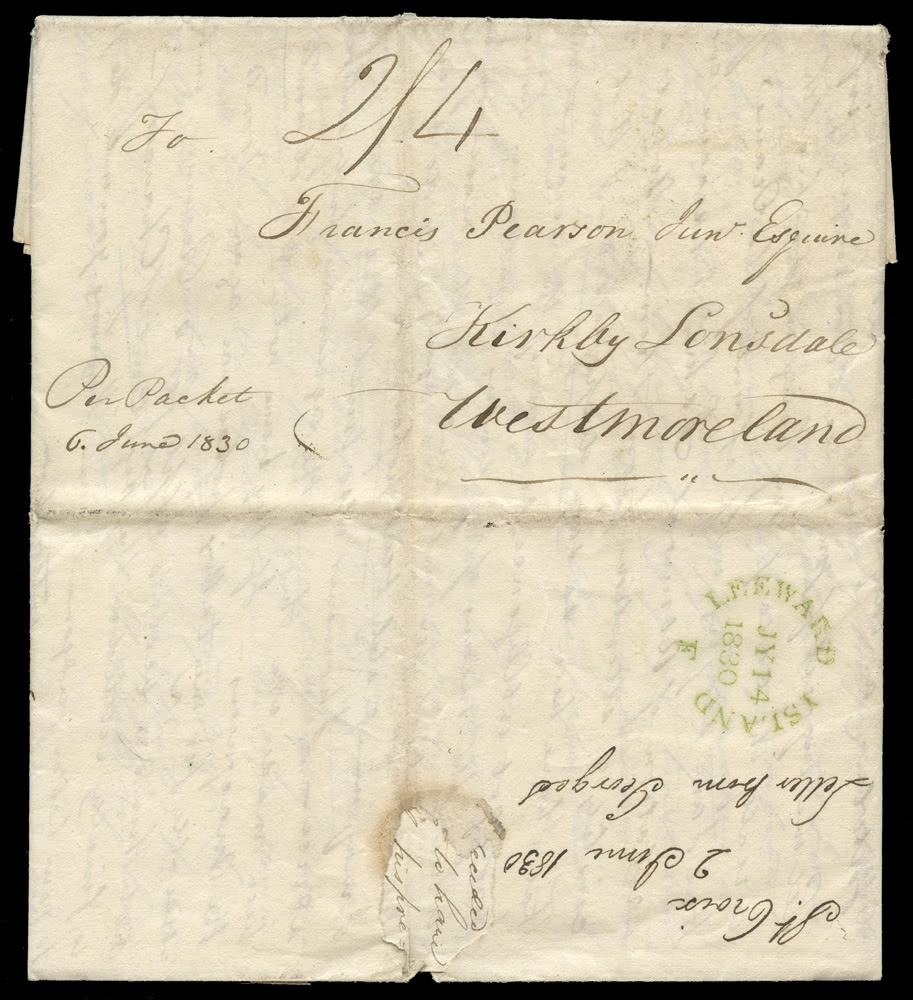 To
2/4
Francis Pearson Junr. Esquire
Kirkby Lonsdale
Westmoreland
Per Packet
6. June 1830
LEEWARD ISLAND
F
JY 14
1830
St. Croix
2 June 1830
Letter from Georged
to have